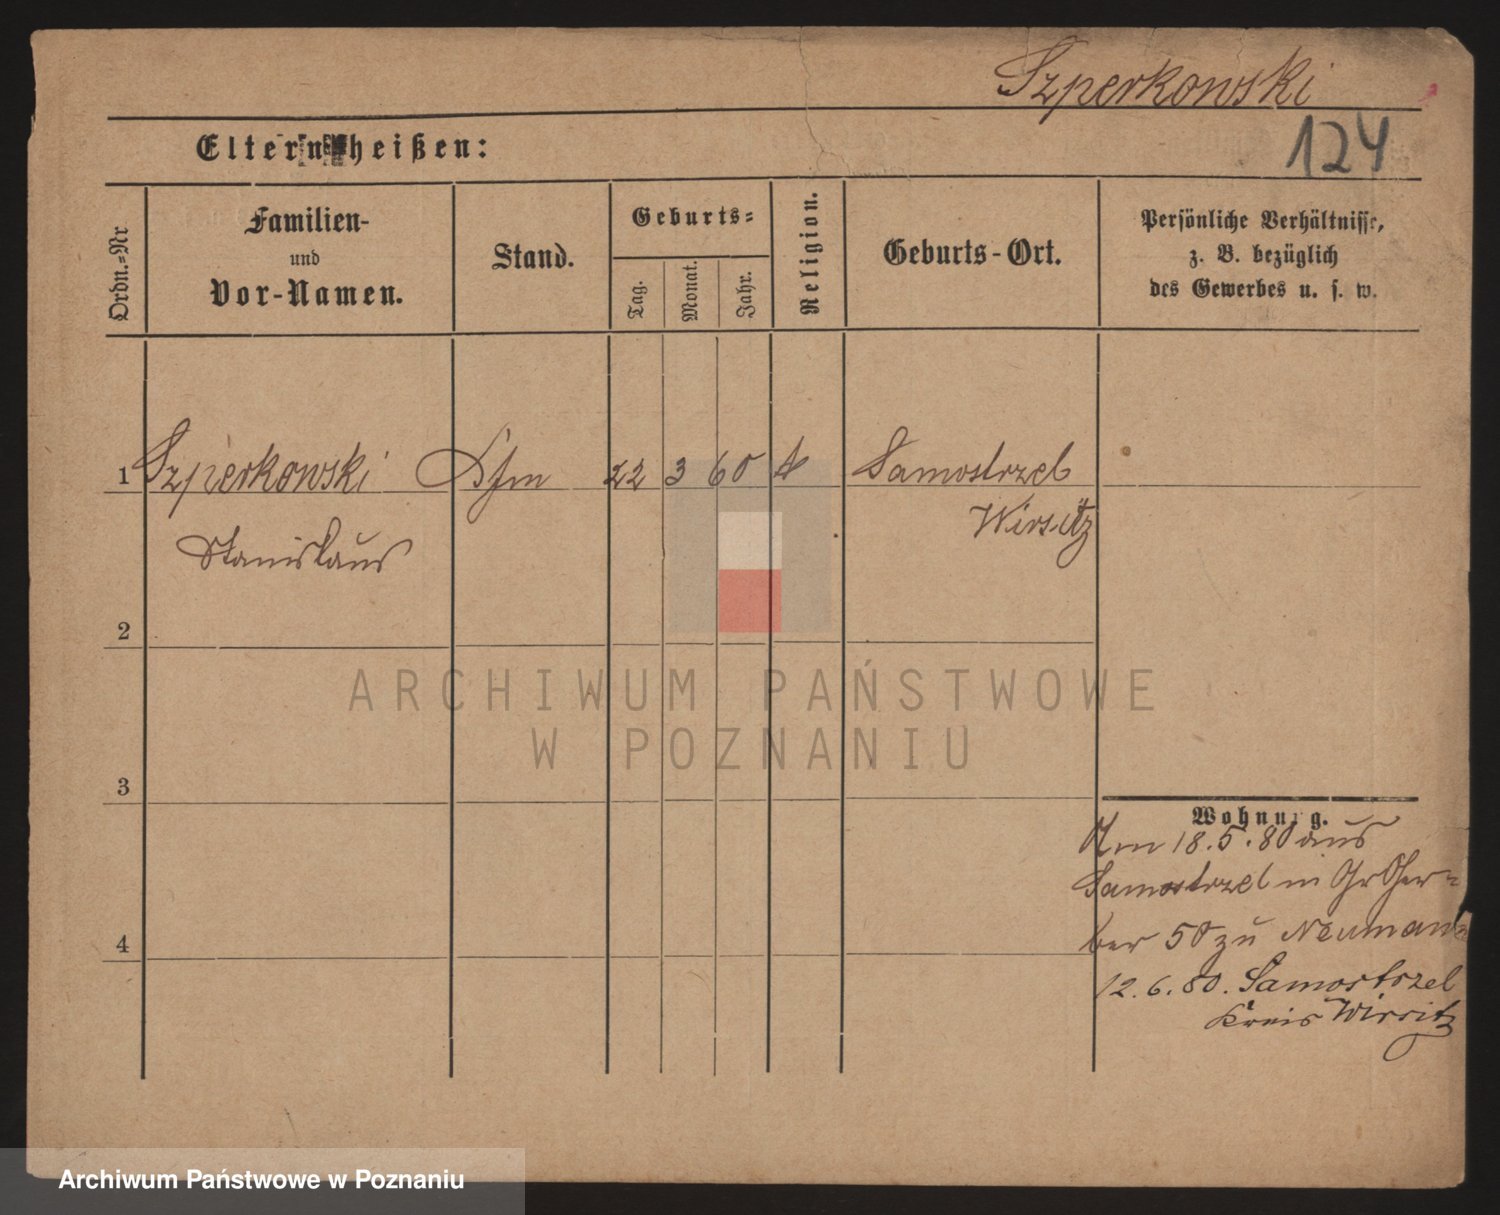 Szperkowski
124
Eltern heißen:
Ordn.=Nr
Familien-
und
Vor-Namen.
Stand.
Geburts=
Tag.
Monat.
Jahr.
Religion.
Geburts-Ort.
Persönliche Verhältnisse,
z. B. bezüglich
des Gewerbes u. s. w.
1 Szperkowski 22 3 60 Samostrzel
Wirsitz
Stanislaus
2
3
4
Wohnung.
Am 18.5.80 aus
Samostrzel in Gr Ger=
ber 50 zu Neumann
12.6.80. Samostrzel
Kreis Wirsitz
ARCHIWUM PAŃSTWOWE
W POZNANIU
Archiwum Państwowe w Poznaniu